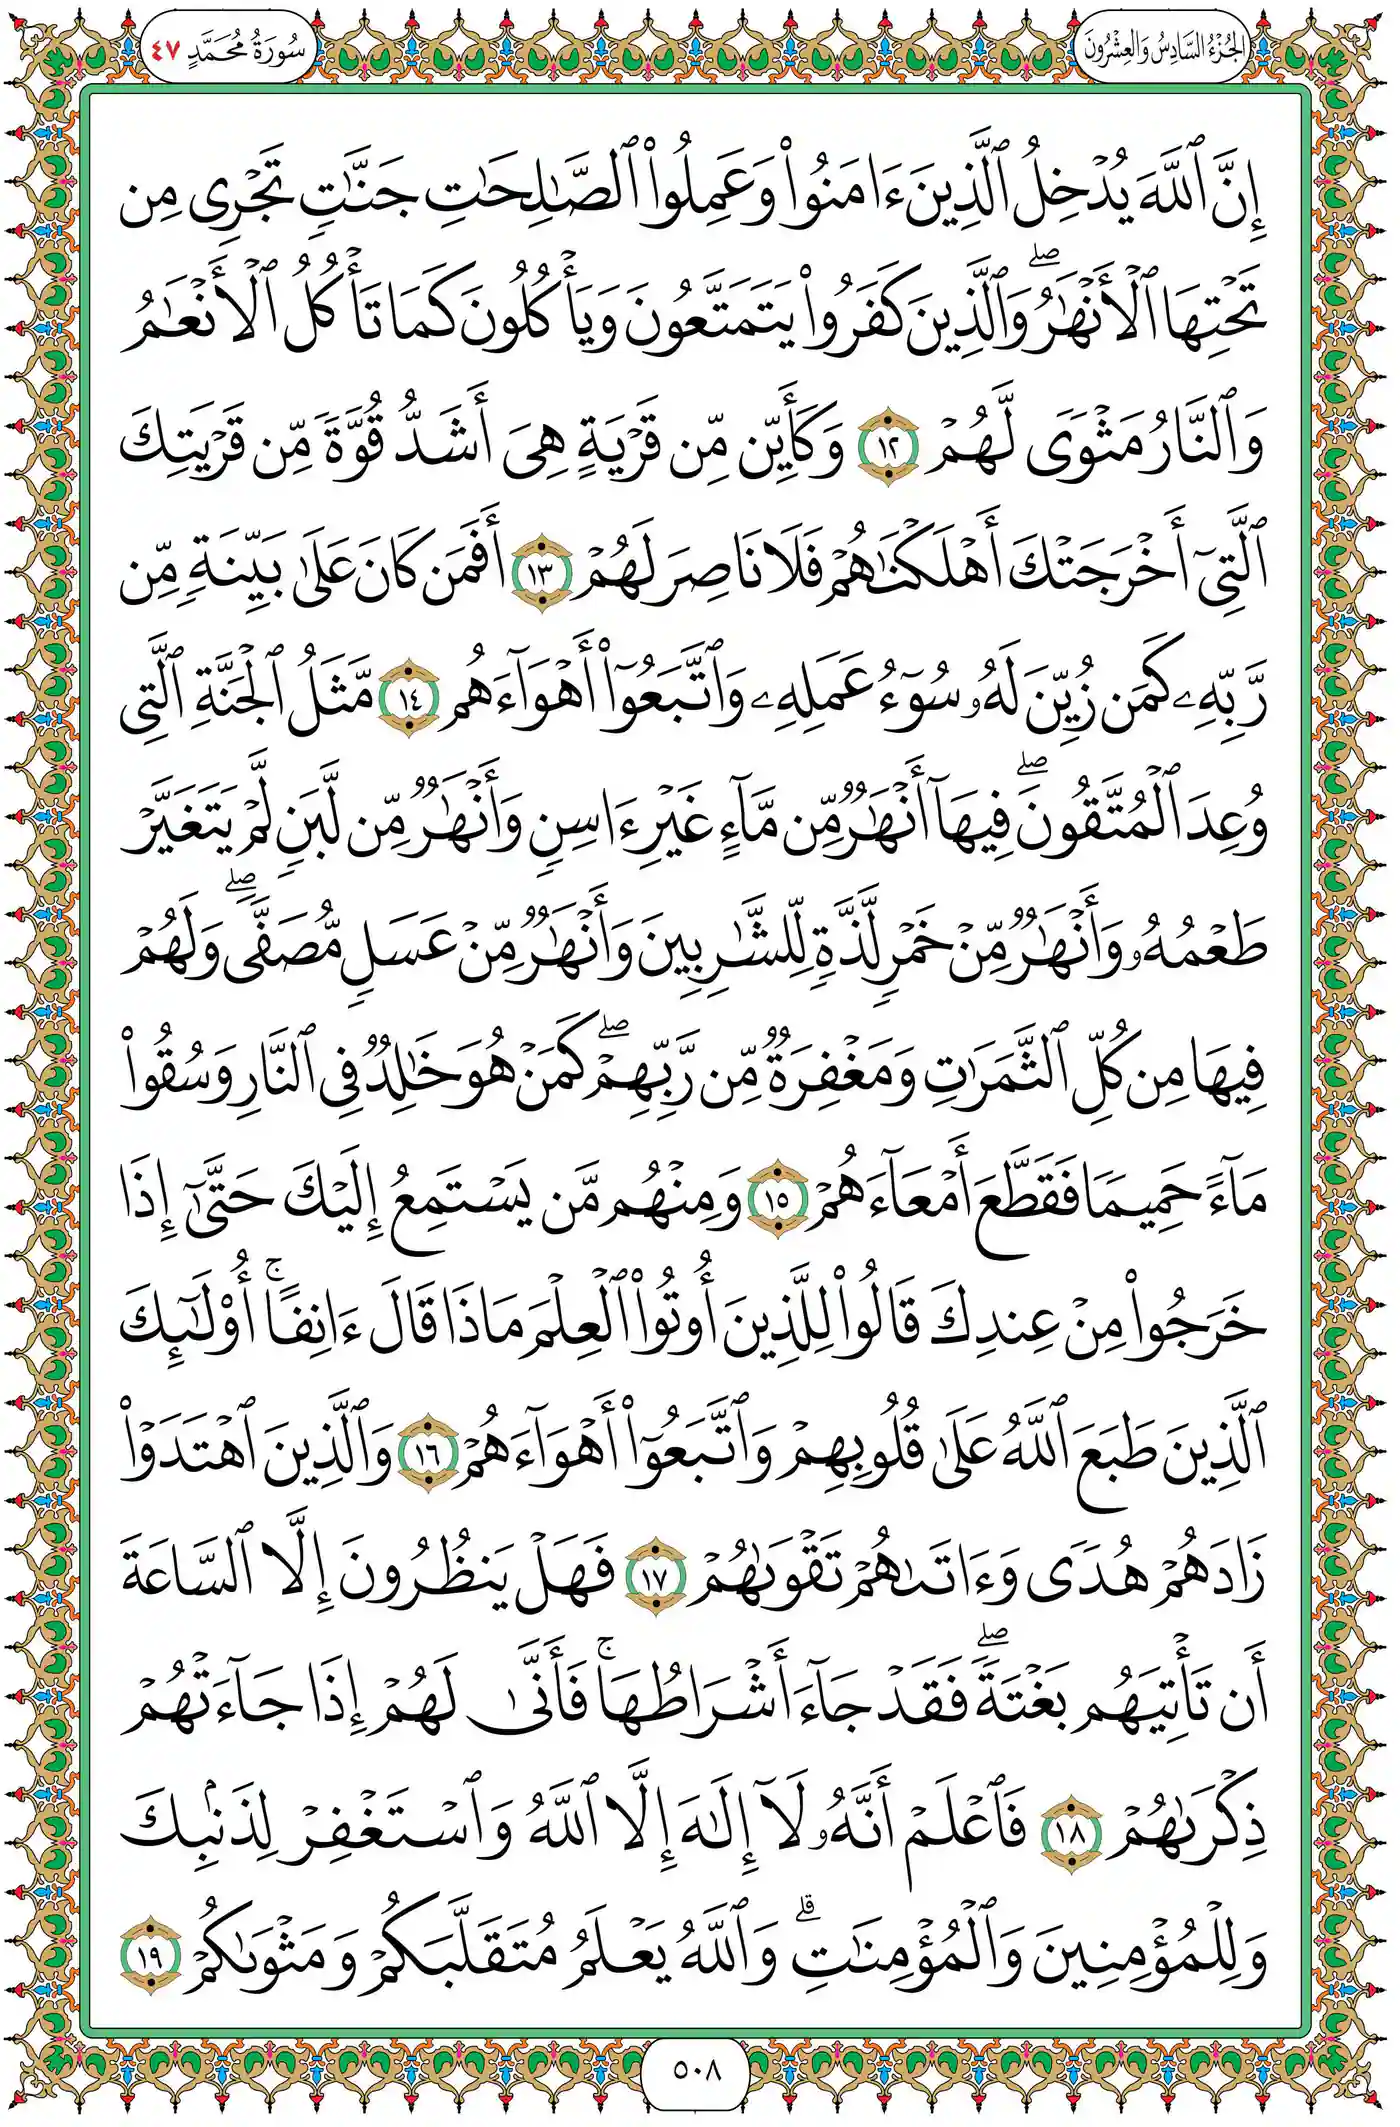 الجُزْءُ السَّادِسُ وَالعِشْرُونَ
سُورَةُ مُحَمَّدٍ ٤٧
إِنَّ ٱللَّهَ يُدۡخِلُ ٱلَّذِينَ ءَامَنُواْ وَعَمِلُواْ ٱلصَّٰلِحَٰتِ جَنَّٰتٖ تَجۡرِي مِن
تَحۡتِهَا ٱلۡأَنۡهَٰرُۖ وَٱلَّذِينَ كَفَرُواْ يَتَمَتَّعُونَ وَيَأۡكُلُونَ كَمَا تَأۡكُلُ ٱلۡأَنۡعَٰمُ
وَٱلنَّارُ مَثۡوٗى لَّهُمۡ ١٢ وَكَأَيِّن مِّن قَرۡيَةٍ هِيَ أَشَدُّ قُوَّةٗ مِّن قَرۡيَتِكَ
ٱلَّتِيٓ أَخۡرَجَتۡكَ أَهۡلَكۡنَٰهُمۡ فَلَا نَاصِرَ لَهُمۡ ١٣ أَفَمَن كَانَ عَلَىٰ بَيِّنَةٖ مِّن
رَّبِّهِۦ كَمَن زُيِّنَ لَهُۥ سُوٓءُ عَمَلِهِۦ وَٱتَّبَعُوٓاْ أَهۡوَآءَهُم ١٤ مَّثَلُ ٱلۡجَنَّةِ ٱلَّتِي
وُعِدَ ٱلۡمُتَّقُونَۖ فِيهَآ أَنۡهَٰرٞ مِّن مَّآءٍ غَيۡرِ ءَاسِنٖ وَأَنۡهَٰرٞ مِّن لَّبَنٖ لَّمۡ يَتَغَيَّرۡ
طَعۡمُهُۥ وَأَنۡهَٰرٞ مِّنۡ خَمۡرٖ لَّذَّةٖ لِّلشَّٰرِبِينَ وَأَنۡهَٰرٞ مِّنۡ عَسَلٖ مُّصَفّٗىۖ وَلَهُمۡ
فِيهَا مِن كُلِّ ٱلثَّمَرَٰتِ وَمَغۡفِرَةٞ مِّن رَّبِّهِمۡۖ كَمَنۡ هُوَ خَٰلِدٞ فِي ٱلنَّارِ وَسُقُواْ
مَآءً حَمِيمٗا فَقَطَّعَ أَمۡعَآءَهُمۡ ١٥ وَمِنۡهُم مَّن يَسۡتَمِعُ إِلَيۡكَ حَتَّىٰٓ إِذَا
خَرَجُواْ مِنۡ عِندِكَ قَالُواْ لِلَّذِينَ أُوتُواْ ٱلۡعِلۡمَ مَاذَا قَالَ ءَانِفًاۚ أُوْلَٰٓئِكَ
ٱلَّذِينَ طَبَعَ ٱللَّهُ عَلَىٰ قُلُوبِهِمۡ وَٱتَّبَعُوٓاْ أَهۡوَآءَهُمۡ ١٦ وَٱلَّذِينَ ٱهۡتَدَوۡاْ
زَادَهُمۡ هُدٗى وَءَاتَىٰهُمۡ تَقۡوَىٰهُمۡ ١٧ فَهَلۡ يَنظُرُونَ إِلَّا ٱلسَّاعَةَ
أَن تَأۡتِيَهُم بَغۡتَةٗۖ فَقَدۡ جَآءَ أَشۡرَاطُهَاۚ فَأَنَّىٰ لَهُمۡ إِذَا جَآءَتۡهُمۡ
ذِكۡرَىٰهُمۡ ١٨ فَٱعۡلَمۡ أَنَّهُۥ لَآ إِلَٰهَ إِلَّا ٱللَّهُ وَٱسۡتَغۡفِرۡ لِذَنۢبِكَ
وَلِلۡمُؤۡمِنِينَ وَٱلۡمُؤۡمِنَٰتِۗ وَٱللَّهُ يَعۡلَمُ مُتَقَلَّبَكُمۡ وَمَثۡوَىٰكُمۡ ١٩
٥٠٨